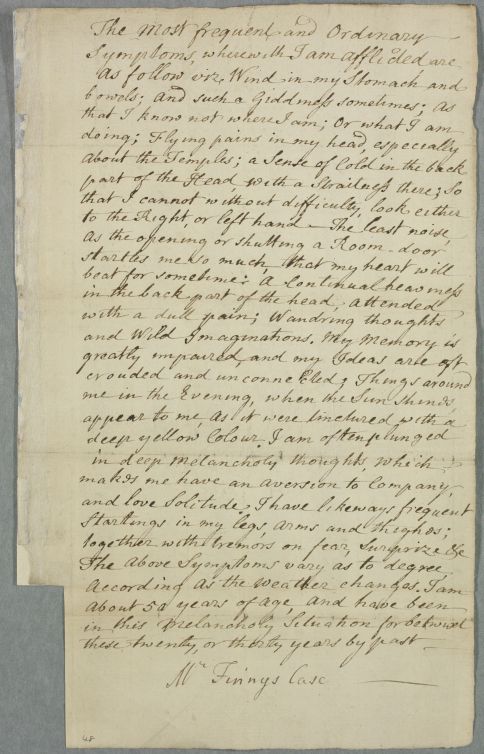 The most frequent and Ordinary
Symptoms, wherewith I am afflicted are
As follow viz. Wind in my Stomach and
bowels; And such a Giddiness sometimes; As
that I know not where I am; Or what I am
doing; Flying pains in my head, especcially
About the Temples; a Sense of Cold in the back
part of the Head, with a Straitness there; So
that I cannot without difficulty, look either
to the Right, or left hand — The least noise,
As the opening or shutting a Room-door
startles me so much, that my heart will
beat for sometime: A Continual heaviness
in the back part of the head, Attended
with a dull pain; Wandring thoughts
and Wild Imaginations. My Memory is
greatly impaired, and my Ideas are oft
crouded and unconnected; Things around
me in the Evening, when the Sun Shinds,
appear to me, As it were tinctured with a
deep yellow Colour. I am often plunged
in deep Melancholy thoughts, which
makes me have an aversion to Company,
and love Solitude, I have likeways frequent
Startings in my legs, Arms and thighs;
together with tremors on fear, Surprize &c
The Above Symptoms vary as to degree
According As the Weather changes. I am
About 54 years of Age, And have been
in this Melancholy Situation for betwixt
these twenty, or thirty years by past —
Mr Finnys Case —
48